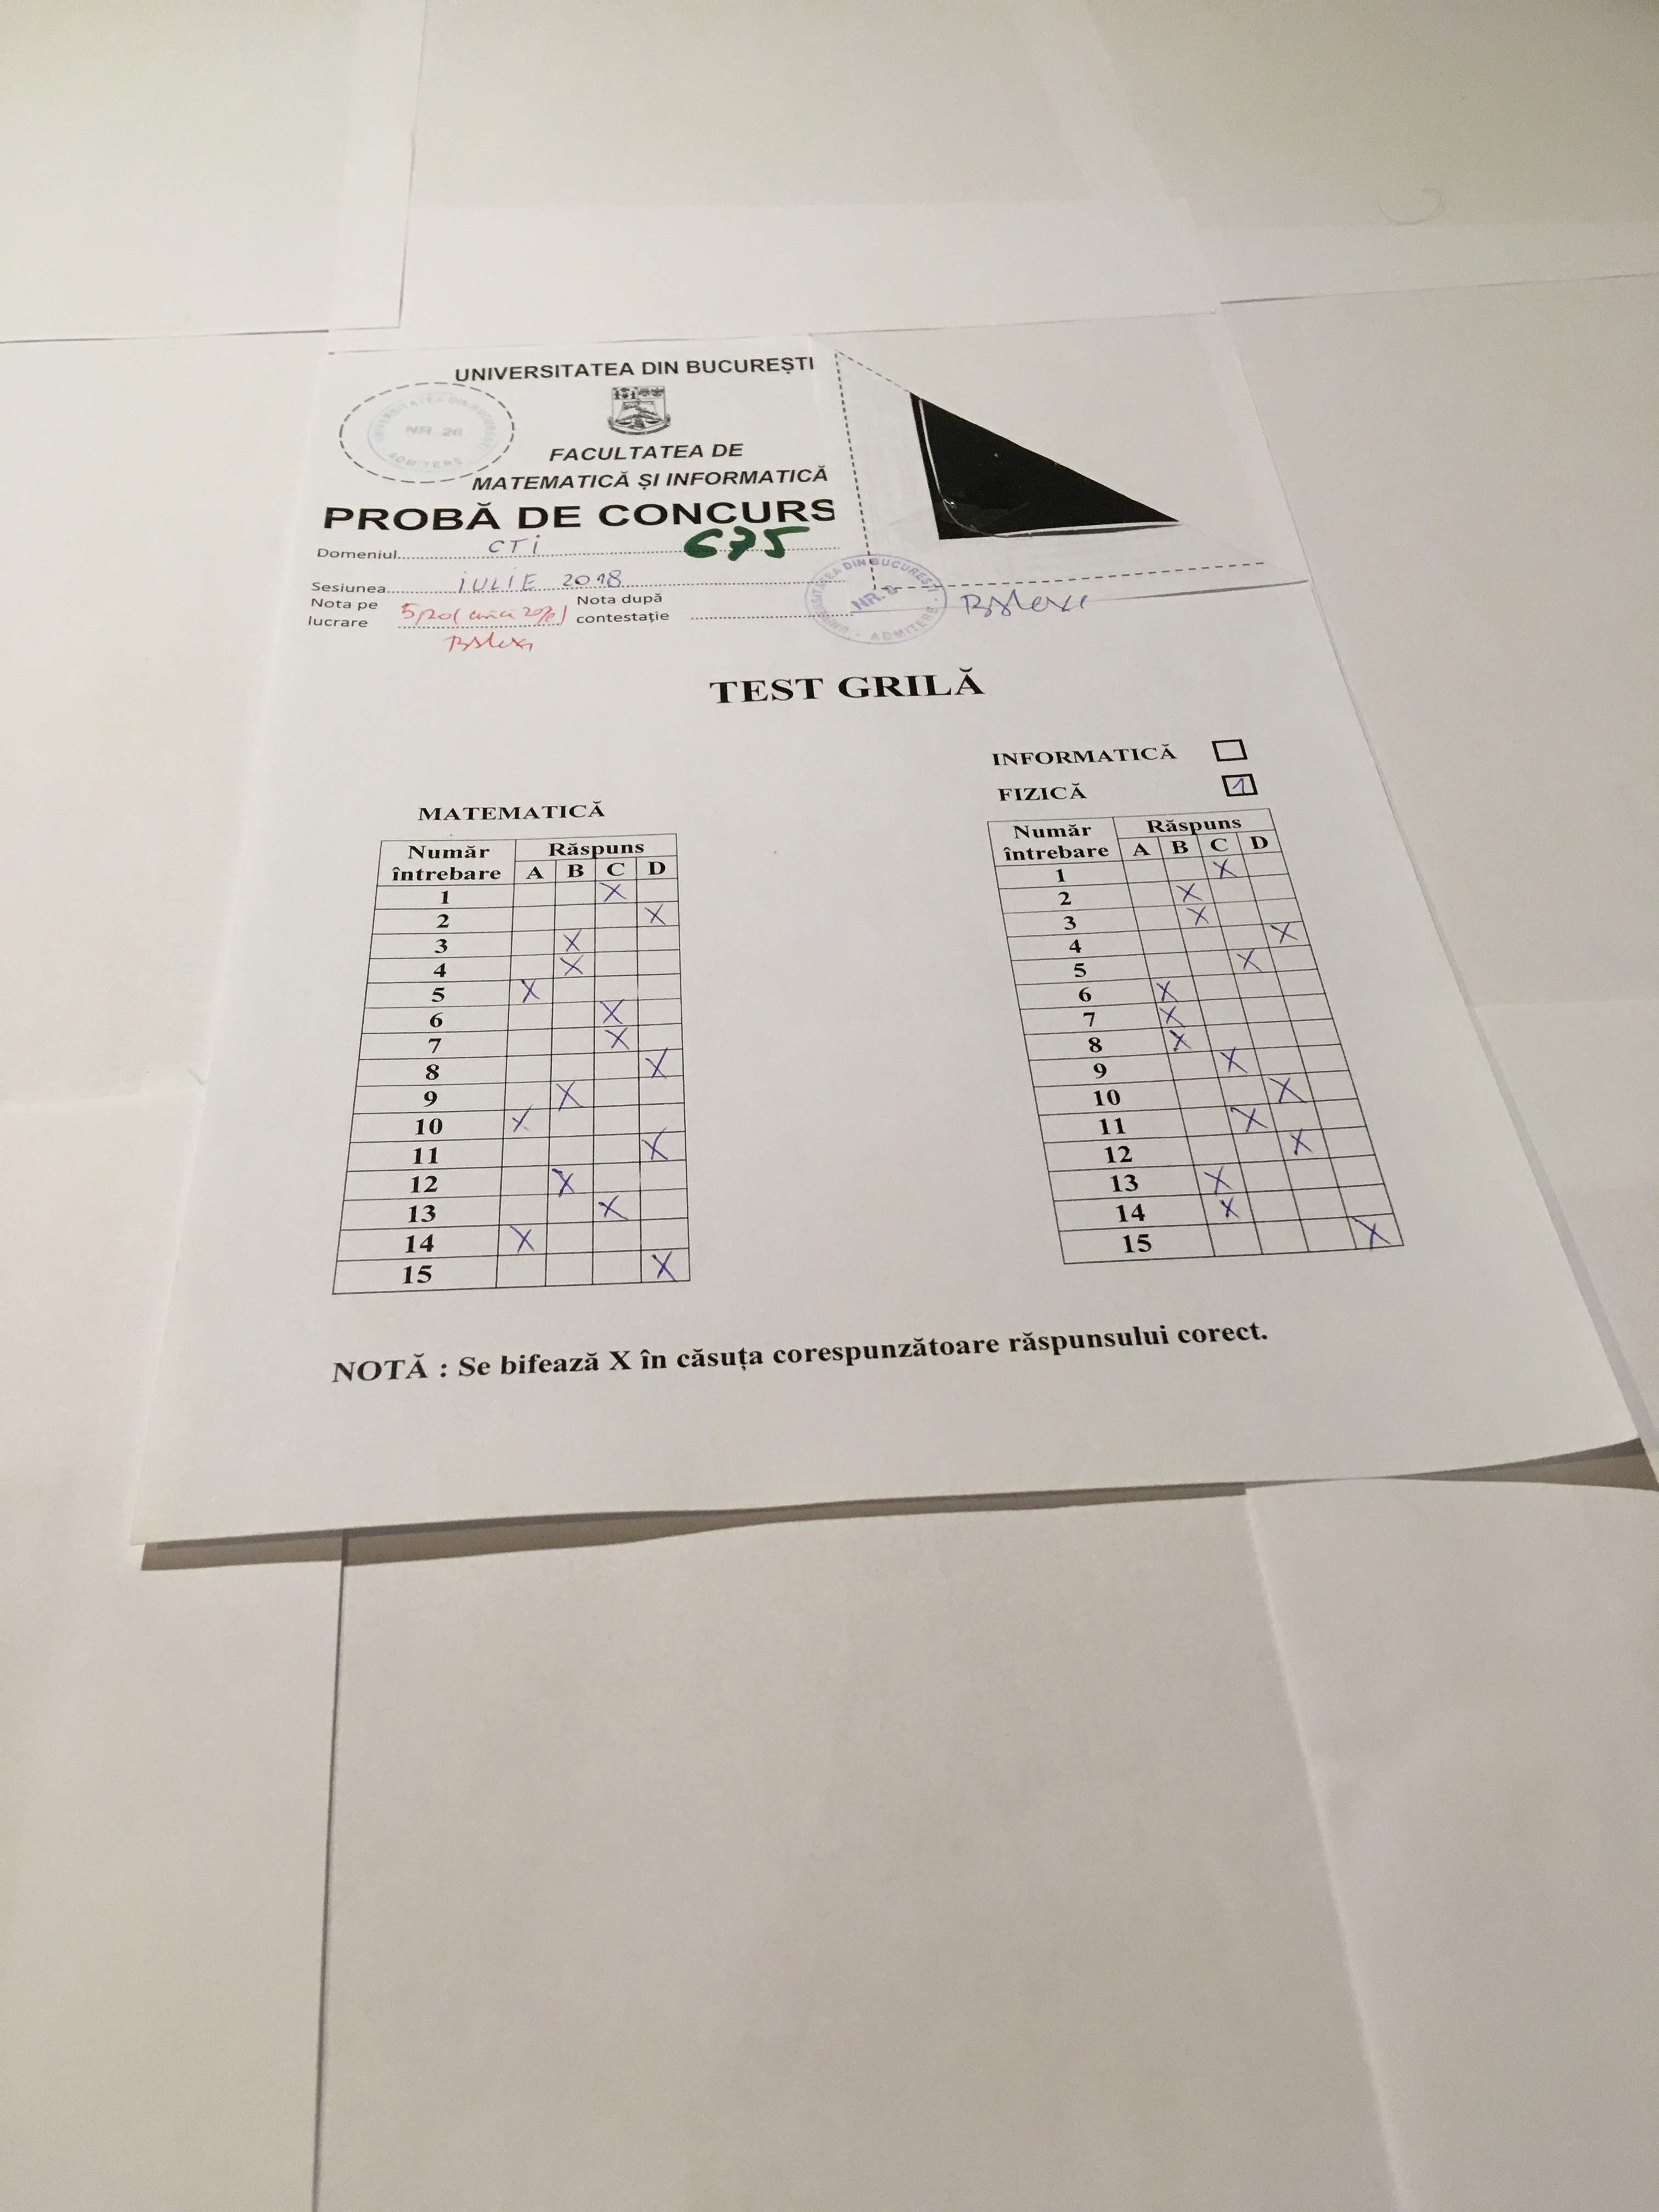 UNIVERSITATEA DIN BUCUREȘTI
UNIVERSITATEA DIN BUCUREȘTI
NR. 26
ADMITERE
FACULTATEA DE
MATEMATICĂ ȘI INFORMATICĂ
PROBĂ DE CONCURS
Domeniul CTI 675
Sesiunea IULIE 2018
Nota pe lucrare 5,20 ( cinci 20%)
Nota după contestație
UNIVERSITATEA DIN BUCUREȘTI
NR. 8
ADMITERE
TEST GRILĂ
INFORMATICĂ
FIZICĂ 1
MATEMATICĂ
Număr întrebare Răspuns
A B C D
1 X
2 X
3 X
4 X
5 X
6 X
7 X
8 X
9 X
10 X
11 X
12 X
13 X
14 X
15 X
Număr întrebare Răspuns
A B C D
1 X
2 X
3 X
4 X
5 X
6 X
7 X
8 X
9 X
10 X
11 X
12 X
13 X
14 X
15 X
NOTĂ : Se bifează X în căsuța corespunzătoare răspunsului corect.